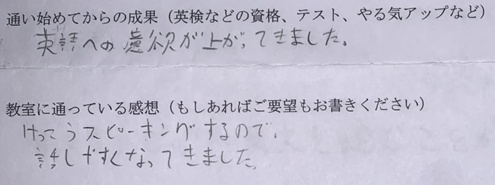 通い始めてからの成果（英検などの資格、テスト、やる気アップなど）
英語への意欲が上がってきました。
教室に通っている感想（もしあればご要望もお書きください）
けっこうスピーキングするので、
話しやすくなってきました。